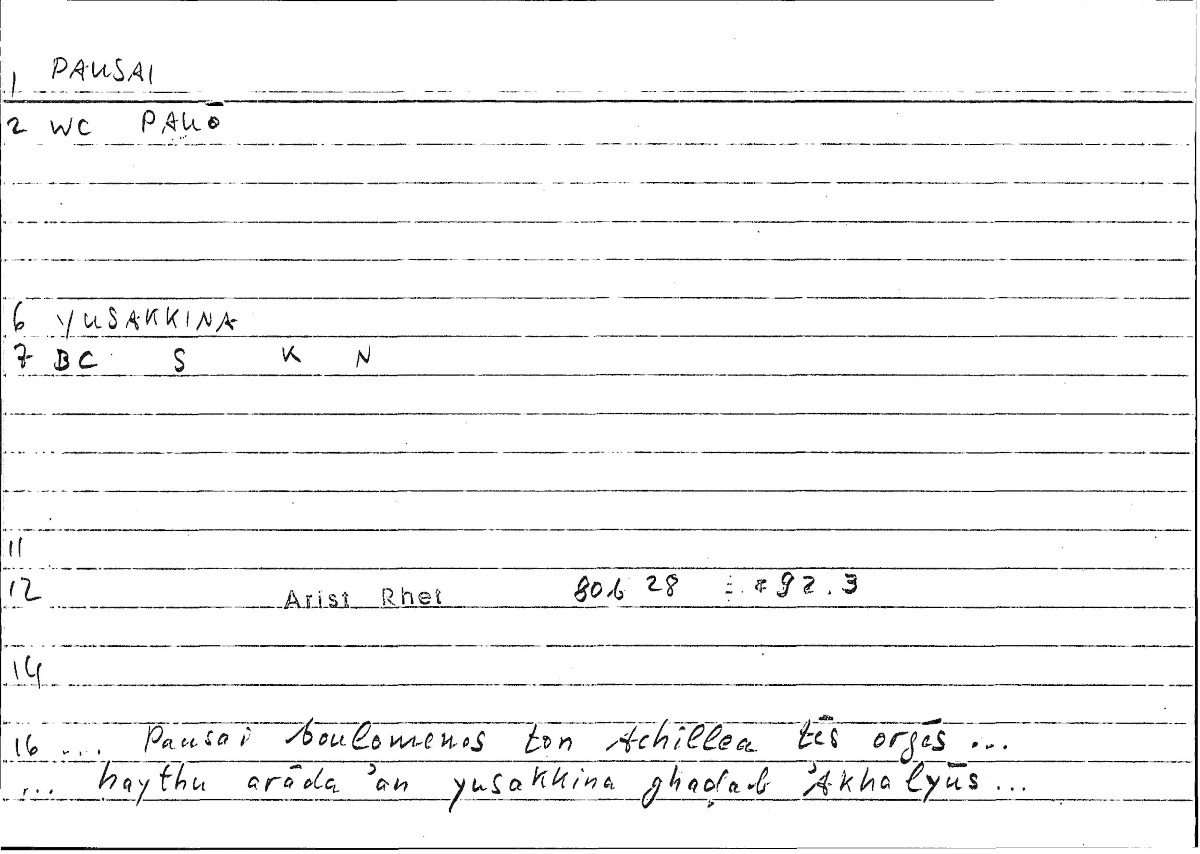 1 PAUSAI
2 WC PAUŌ
6 YUSAKKINA
7 BC S K N
11
12 Arist Rhet 80b 28 92.3
14
16 ... Pausai boulomenos ton Achillea tēs orgēs ...
... haythu arāda ʾan yusakkina ghaḍab ʾAkhalyūs ...